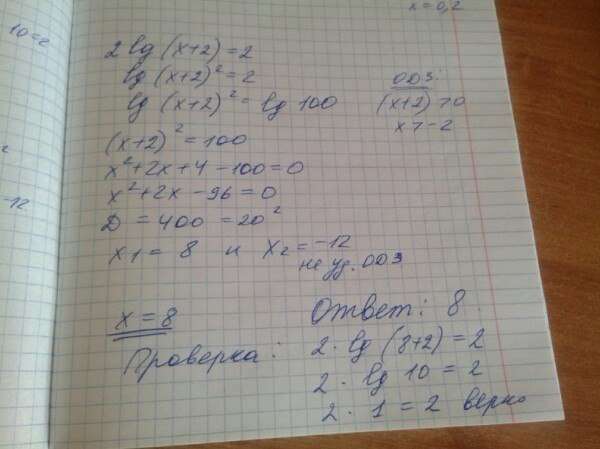 x=0,2
10=2
2 lg (x+2) = 2
lg (x+2)² = 2
lg (x+2)² = lg 100
ОДЗ:
(x+2) > 0
x > -2
(x+2)² = 100
x² + 2x + 4 - 100 = 0
x² + 2x - 96 = 0
D = 400 = 20²
x1 = 8 и x2 = -12
не уд. ОДЗ
-12
x = 8
Ответ: 8.
Проверка:
2 · lg (8+2) = 2
2 · lg 10 = 2
2 · 1 = 2 верно